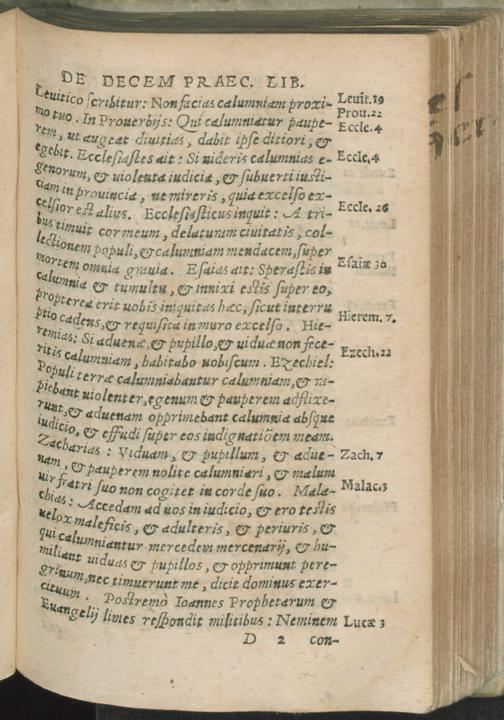 DE DECEM PRAEC. LIB.
Leuitico scribitur: Non facias calumniam proxi- Leuit.19
mo tuo. In Prouerbijs: Qui calumniatur paupe- Prou.22
rem, ut augeat diuitias, dabit ipse ditiori, & Eccle.4
egebit. Ecclesiastes ait: Si uideris calumnias e- Eccle.4
genorum, & uiolenta iudicia, & subuerti iusti-
ciam in prouincia, ne mireris, quia excelso ex-
celsior est alius. Ecclesiasticus inquit: A tri- Eccle. 26
bus timuit cor meum, delaturam ciuitatis, col-
lectionem populi, & calumniam mendacem, super
mortem omnia grauia. Esaias ait: Sperastis in Esaiæ 30
calumnia & tumultu, & innixi estis super eo,
propterea erit uobis iniquitas hæc, sicut interru
ptio cadens, & requisita in muro excelso. Hie- Hierem. 7.
remias: Si aduenæ, & pupillo, & uiduæ non fece-
ritis calumniam, habitabo uobiscum. Ezechiel: Ezech.22
Populi terræ calumniabantur calumniam, & ra-
piebant uiolenter, egenum & pauperem afflixe-
runt, & aduenam opprimebant calumnia absque
iudicio, & effudi super eos indignatiõem meam.
Zacharias: Viduam, & pupillum, & adue- Zach. 7
nam, & pauperem nolite calumniari, & malum
uir fratri suo non cogitet in corde suo. Mala- Malac.3
chias: Accedam ad uos in iudicio, & ero testis
uelox maleficis, & adulteris, & periuris, &
qui calumniantur mercedem mercenarij, & hu-
miliant uiduas & pupillos, & opprimunt pere-
grinum, nec timuerunt me, dicit dominus exer-
cituum. Postremò Ioannes Prophetarum &
Euangelij limes respondit militibus: Neminem Lucæ 3
D 2 con-